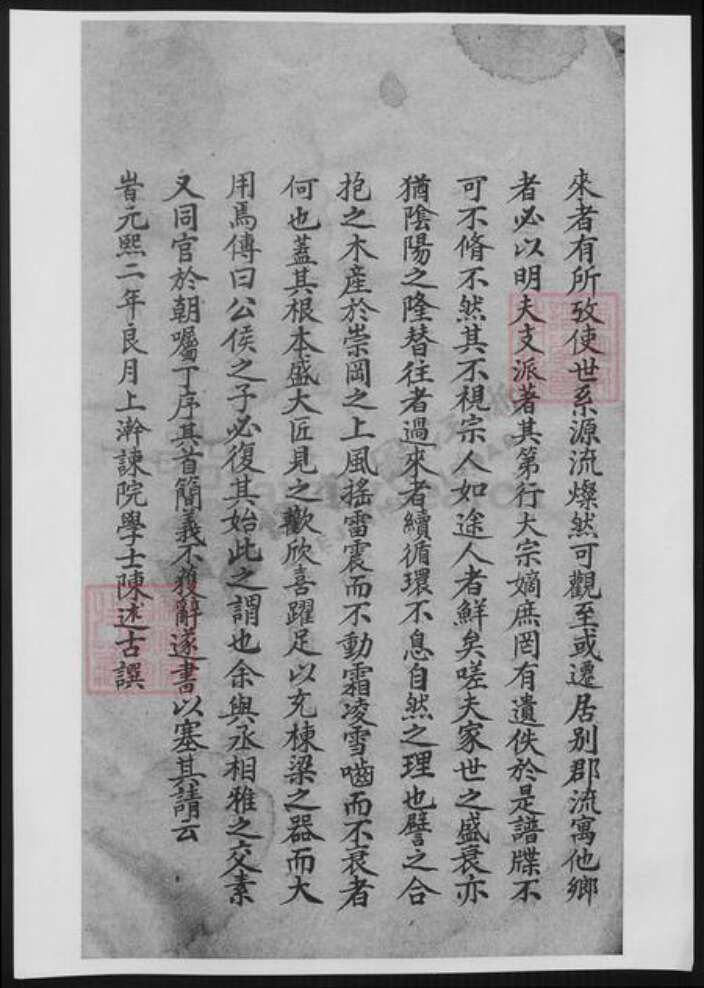 來者有所攷使世系源流燦然可觀至或遷居别郡流寓他鄉
者必以明夫支派著其第行大宗嫡庶罔有遺佚於是譜牒不
可不脩不然其不視宗人如途人者鮮矣嗟夫家世之盛衰亦
猶陰陽之隆替往者過來者續循環不息自然之理也譬之合
抱之木産於崇岡之上風搖雷震而不動霜凌雪嚙而不衰者
何也蓋其根本盛大匠見之歡欣喜躍足以充棟梁之器而大
用焉傳曰公侯之子必復其始此之謂也余與丞相雅之交素
又同官於朝囑丁序其首簡義不獲辭遂書以塞其請云
旹元熙二年良月上澣諫院學士陳述古譔